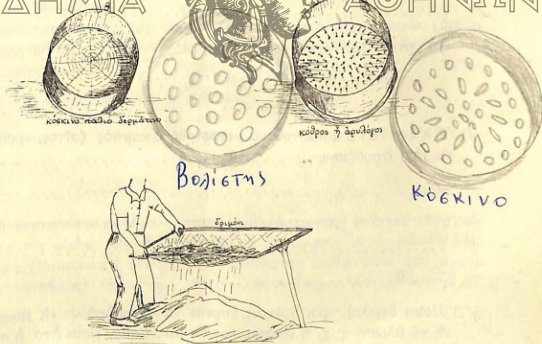 ΔΗΜΙΑ
ΑΘΗΝΩΝ
κόσκινο παλιό δερμάτινο
κόθρος ἤ ἀρυλόγος
Βολίστης
Κόσκινο
δριμόνι